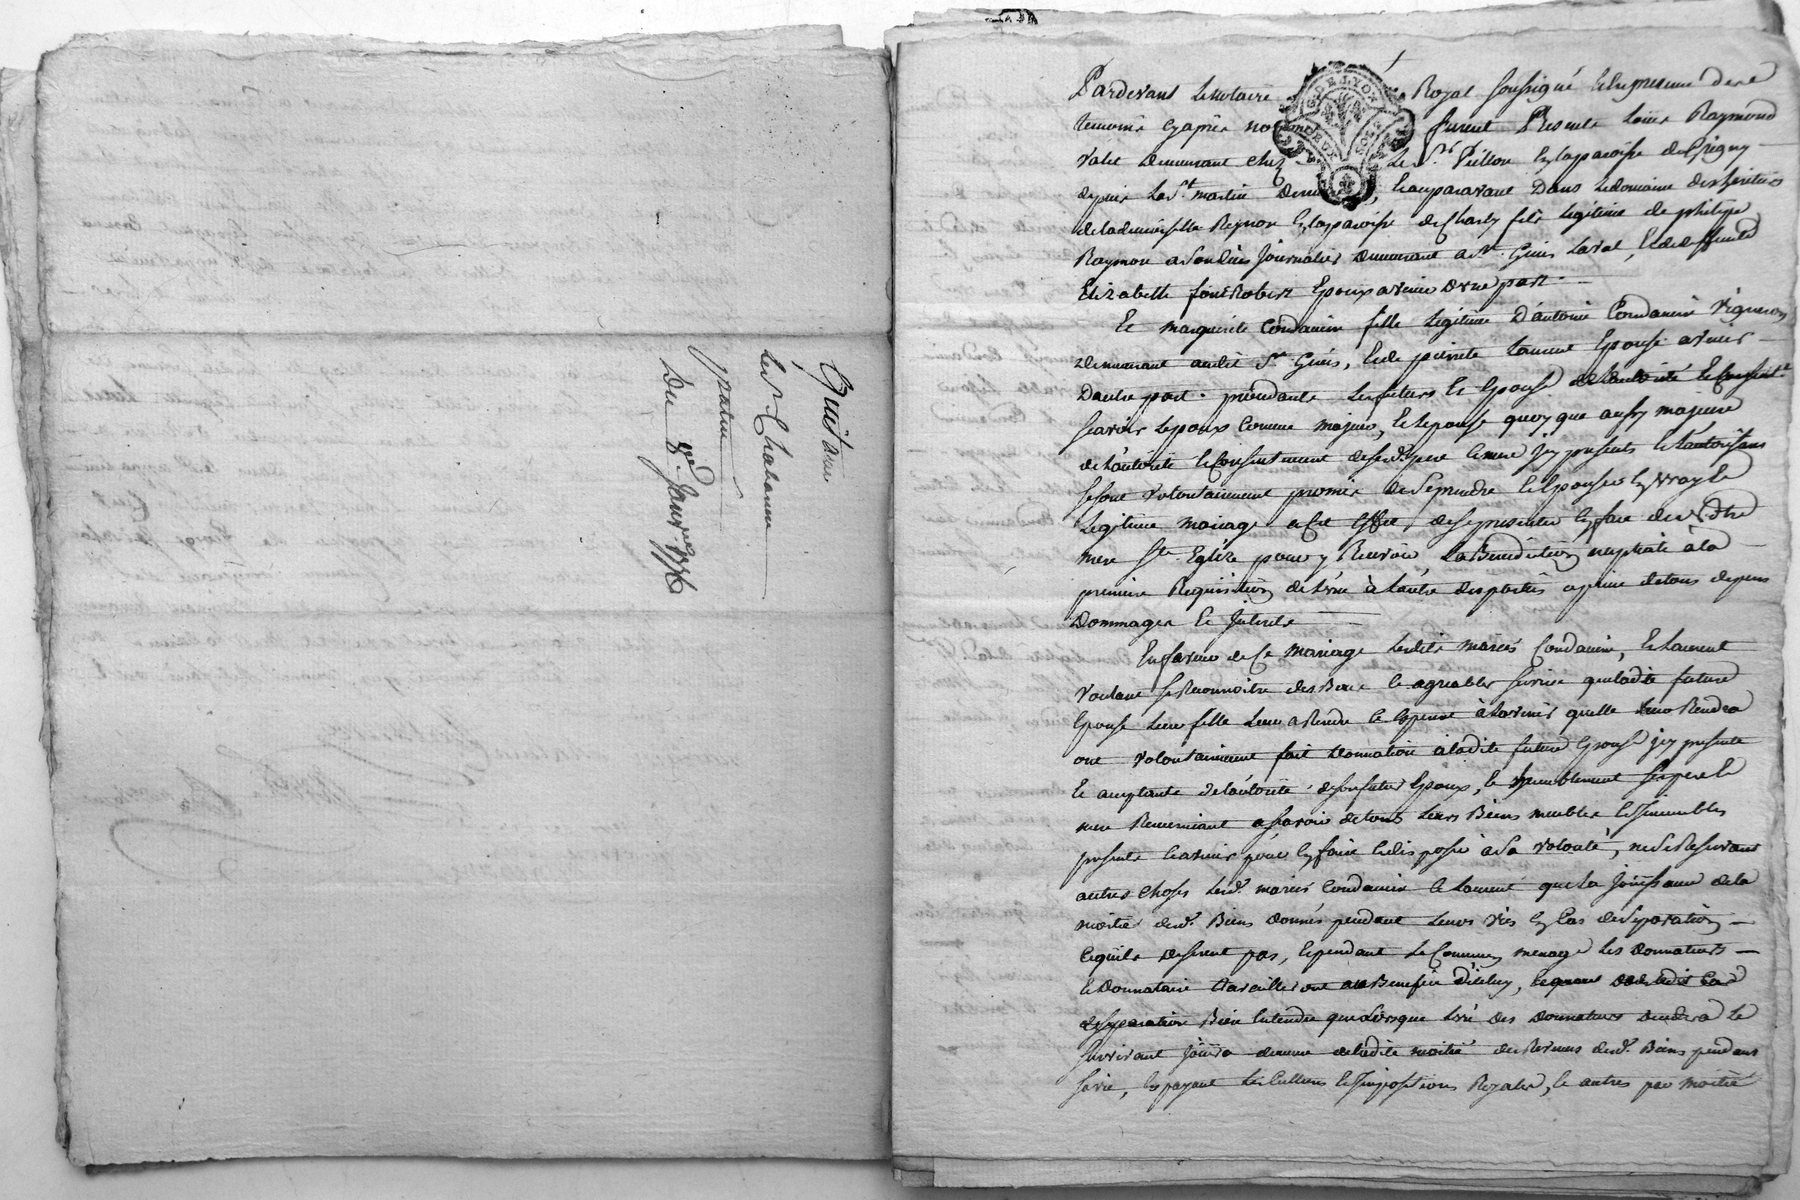 Quittance
Le Sr. Chavanne
Du 8. Janv. 1776
G. DE LYON
DEUX SOLS
Pardevant Le Notaire Royal soussigné et En presence des
temoins Cy apres nommés furent Presents Loüis Raymond
Valet Demeurant chez Le Sr. Pitiot En la paroisse d'Irigny
depuis la St. martin Derniere, Et auparavant Dans Le domaine des heritiers
de la demoiselle Reynon En la paroisse de Charly fils Legitime de philipe
Raymon a Son vivant Journalier Demeurant a St. Genis Laval, Et de deffunte
Elizabeth Robert Epoux avenir D'une part.
Et marguerite Condamin fille Legitime D'antoine Condamin Vigneron
Demeurant audit St. Genis, Et de pierrete Laurent Epouse avenir
D'autre part. procedants Les futurs Et Epouse de L'autorité Et Consentt.
scavoir L'epoux Comme majeur, Et L'epouse quoy que aussy majeure
de L'autorité Et Consentement desesd. pere Et mere Icy presents Et L'autorisans
se sont volontairement promis de Se prendre Et Epouser En vray Et
Legitime mariage a Cet Effet de se presenter En face de Notre
mere Ste. Eglize pour y Recevoir La Benediction nuptiale à la
premiere Requisition de L'une à L'autre des parties a peine de tous depens
Dommages Et Interets
En faveur de Ce mariage Lesdits mariés Condamin, Et Laurent
Voulant Se Reconnoitre des Bons Et agreables services que ladite future
Epouse Leur fille Leur a Rendu Et Esperent à L'avenir qu'elle Leur Rendra
ont Volontairement fait Donnation à ladite future Epouse Icy presente
Et acceptante de L'autorité de son futur Epoux, Et humblement Ses pere Et
mere Remerciant a scavoir de tous Leurs Biens meubles Et Immeubles
presents Et avenir pour En faire Et disposer à Sa volonté, ne Se Reservant
autres choses Lesd. mariés Condamin Et Laurent que La Joüissance de la
moitié desd. Biens Donnés pendant Leurs vies En Cas de Separation
Ce qu'ils Desirent pas, Et pendant Le Commun menage Les Donnateurs
Et Donnataire travailleront au Benefice d'iceluy, Et avant Dudit Cas
de Separation Bien Entendu que Lorsque L'un des Donnateurs Decedera Le
survivant Joüira de meme de ladite moitié des Revenus desd. Biens pendant
sa vie, En payant Les Cultures Et Impositions Royales, Et autres par moitié